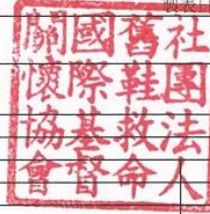 社團法人
舊鞋救命
國際基督
關懷協會